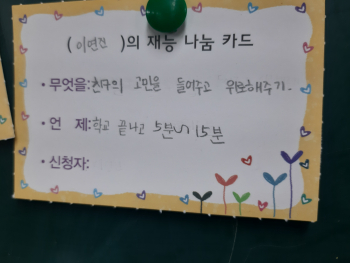 ( 이연진 )의 재능 나눔 카드
• 무엇을: 친구의 고민을 들어주고 위로해주기.
• 언 제: 학교 끝나고 5분~15분
• 신청자: